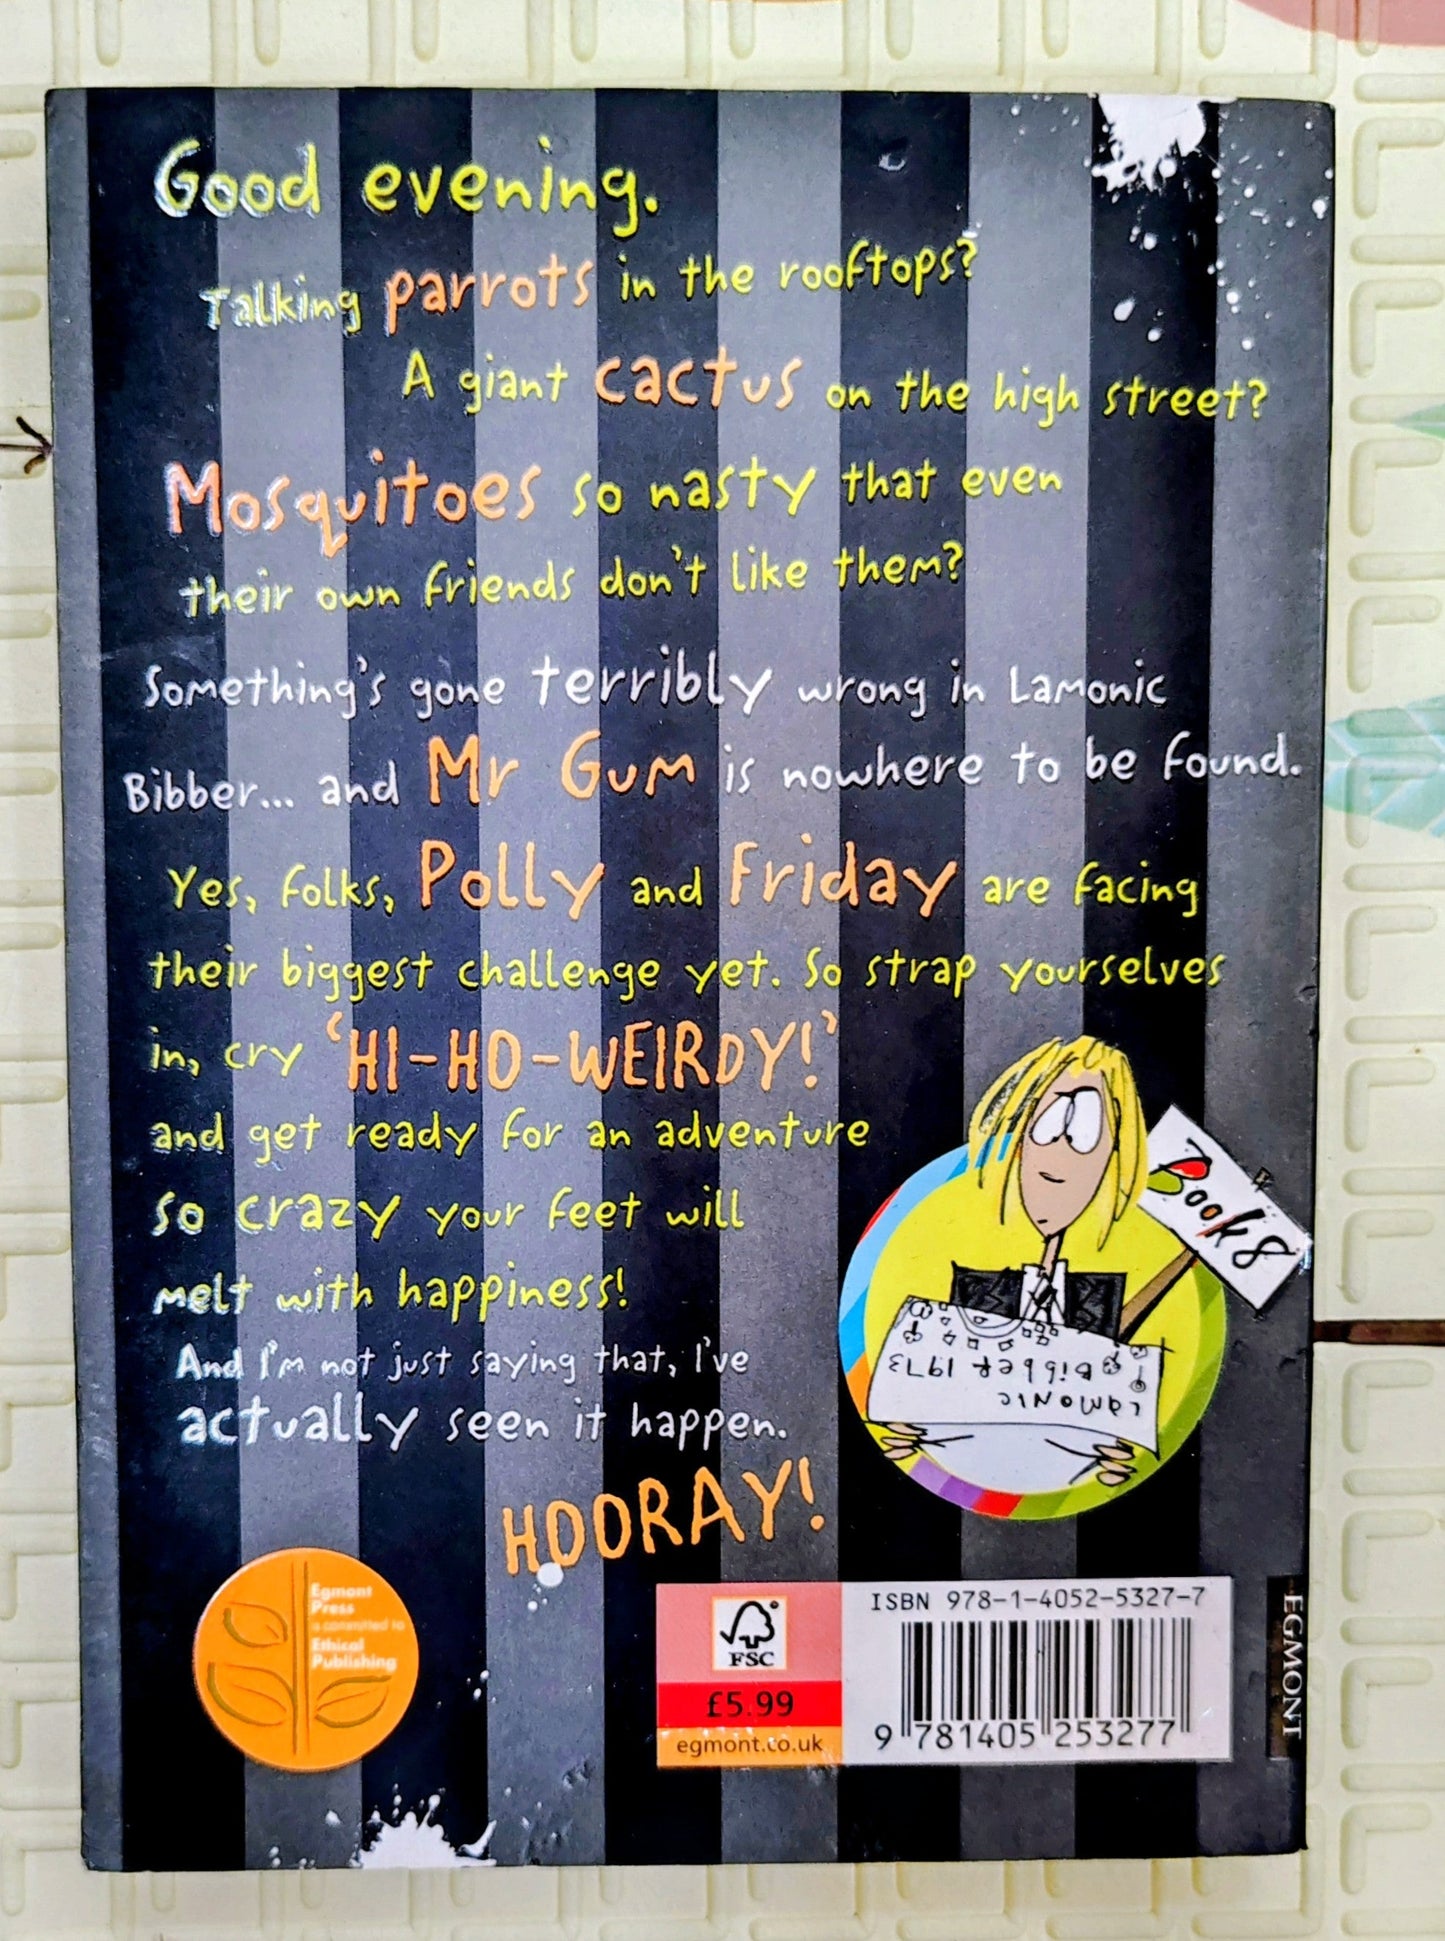 Good evening.
Talking parrots in the rooftops?
A giant cactus on the high street?
Mosquitoes so nasty that even
their own friends don't like them?
Something's gone terribly wrong in Lamonic
Bibber... and Mr Gum is nowhere to be found.
Yes, folks, Polly and Friday are facing
their biggest challenge yet. So strap yourselves
in, cry 'HI-HO-WEIRDY!'
and get ready for an adventure
so crazy your feet will
melt with happiness!
And I'm not just saying that, I've
actually seen it happen.
HOORAY!
Book 8
Lamonic
Bibber 1973
Egmont
Press
is committed to
Ethical
Publishing
FSC
£5.99
egmont.co.uk
ISBN 978-1-4052-5327-7
9 781405 253277
EGMONT